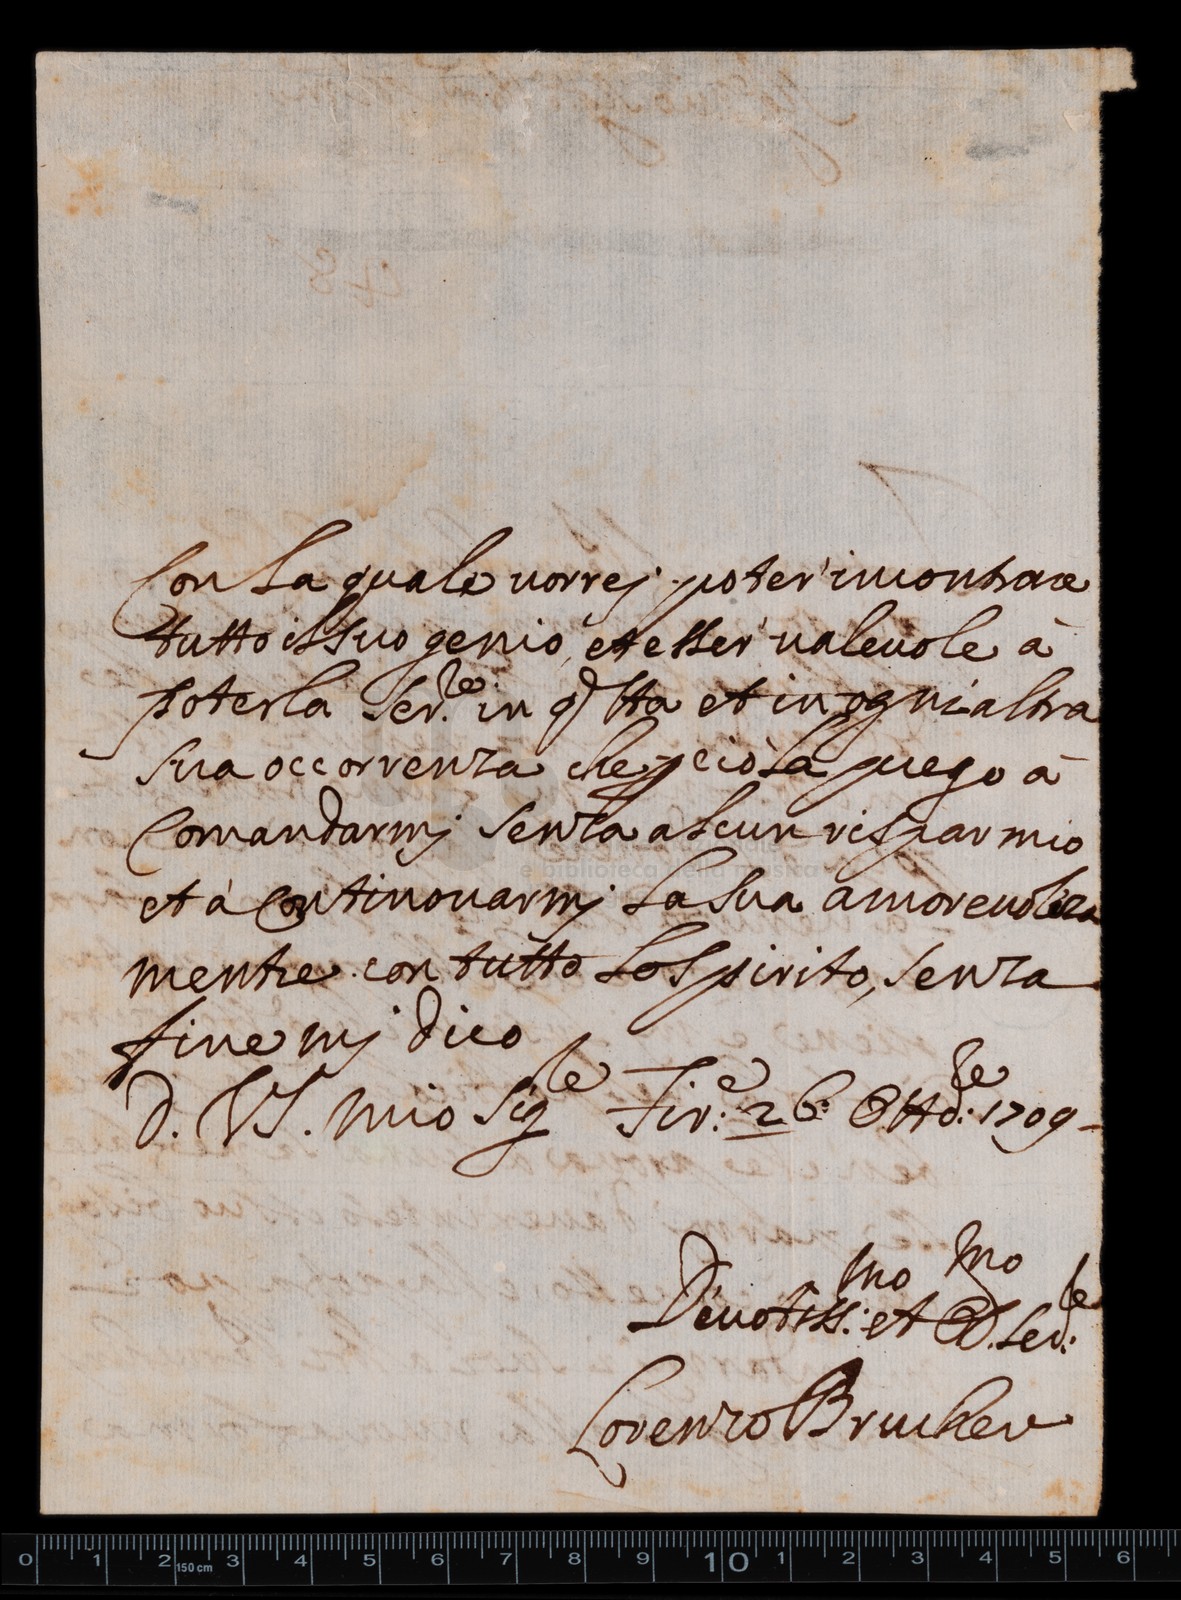 Con la quale vorrej poter' incontrare
tutto il suo genio, et esser' valevole à
poterla ser.le in q.sta et in ogni altra
sua occorrenza che p ciò la priego à
Comandarmj senza alcun risparmio
et à Continovarmj la sua amorevoleza
mentre con tutto lo spirito, senza
fine mj dico
D. VS. mio Sig.le Fir.e: 26: Ott.bre 1709 -
Devotiss.mo: et O.mo Ser.le:
Lorenzo Brucker
e biblioteca della musica
0 1 2 3 4 5 6 7 8 9 10 1 2 3 4 5 6
150 cm